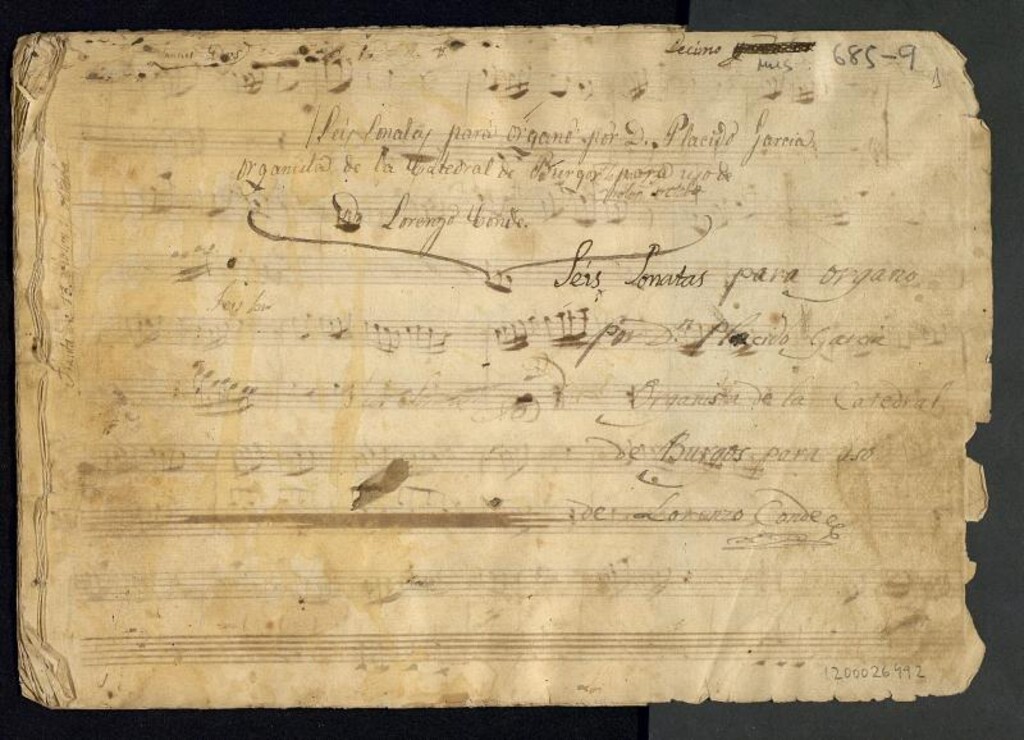 Mus 685-9
1
Seis Sonatas para organo por D. Placido Garcia
organista de la Catedral de Burgos para uso de
Lorenzo Conde.
Seis Sonatas para organo
por D.n Placido Garcia
Organista de la Catedral
de Burgos para uso
de Lorenzo Conde
1200026992